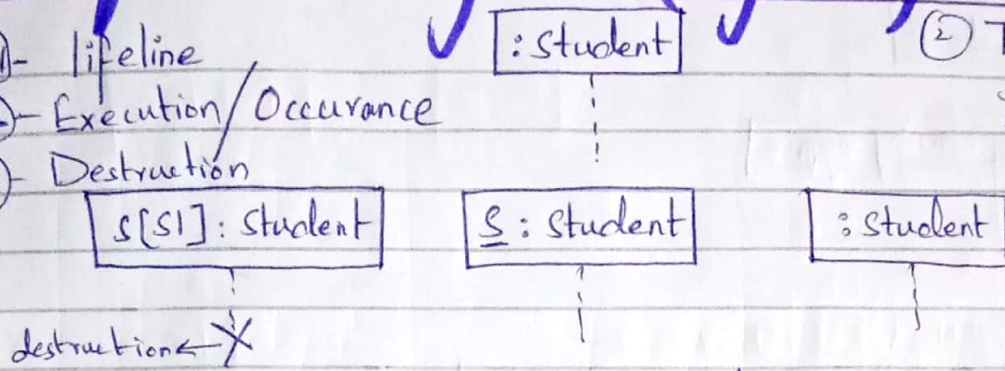 - lifeline
:Student
②
- Execution/Occurance
- Destruction
S[S1]: Student
S: Student
: Student
destruction←X